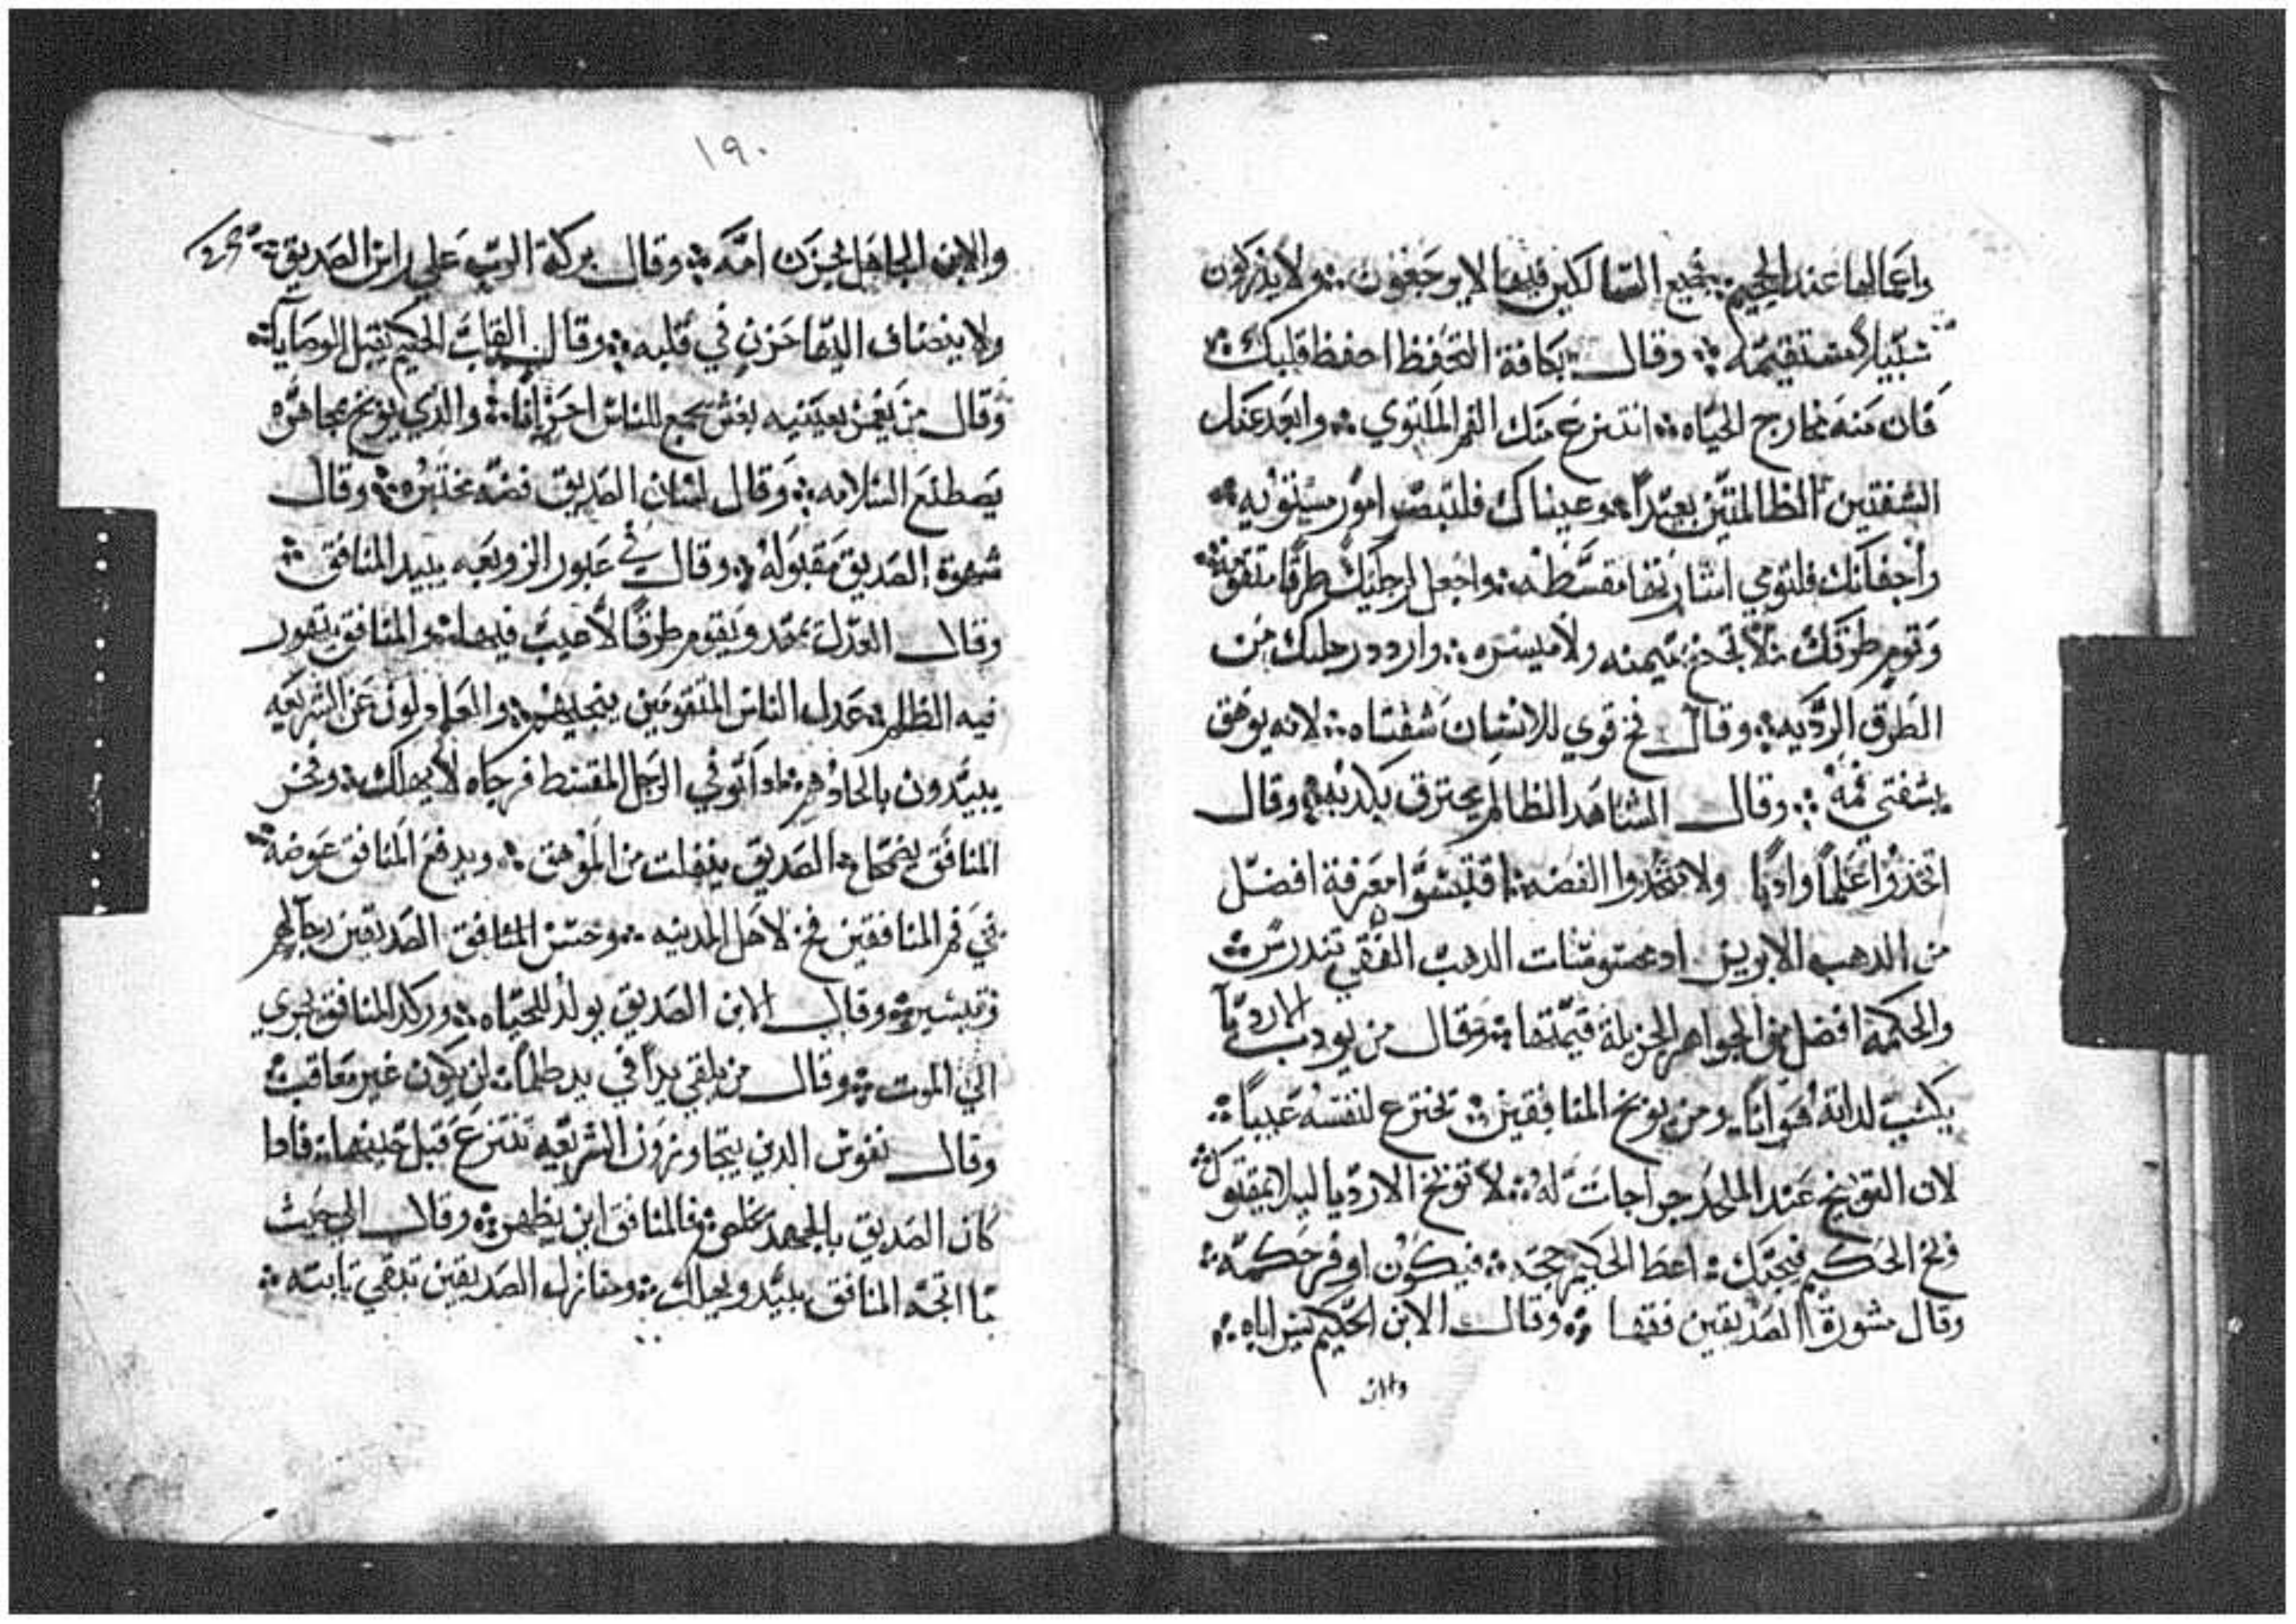 واعمالها عند الجحيم ❖ جميع السالكين فيها لا يرجعون ❖ ولا يدركون
سبيلاً مستقيمه ❖ وقال بكافة التحفظ احفظ قلبك ❖
فان منه مخارج الحياه ❖ انتزع منك الفم الملتوي ❖ وابعد عنك
الشفتين الظالمتين بعيداً ❖ وعيناك فلتبصر امور مستويه ❖
واجفانك فلتومي اشارتها مقسطه ❖ واجعل لرجليك طرقًا متقومة ❖
وقوم طرقك ❖ لا تجنح يمنه ولا ميسره ❖ واردد رجلك من
الطرق الرديه ❖ وقال فخ قوي للانسان شفتاه ❖ لانه يوهق
بشفتي فمه ❖ وقال الشاهد الظالم يحترق بكدبه ❖ وقال
اتخذوا علمًا وادبًا ولا تتخدوا الفضه ❖ اقتبسوا معرفة افضل
من الدهب الابريز
والحكمه افضل من الجواهر الجزيلة قيمتها ❖ وقال من يودب الارديا
يكسب لداته هوانًا ومن يوبخ المنافقين ❖ تخترع لنفسه عيبًا ❖
لان التوبيخ عند الملحد جراحات له ❖ لا توبخ الارديا ليلا يمقتوك ❖
وبخ الحكيم فيحبك ❖ اعط الحكيم حجه ❖ فيكون اوفر حكمه ❖
وقال مشورة الصديقين فقها ❖ وقال الابن الحكيم يسر اباه ❖
والابن
١٩٠
والابن الجاهل يحزن امه ❖ وقال بركة الرب على راس الصديق ❖
ولا ينضاف اليها حزن في قلبه ❖ وقال القلب الحكيم يقبل الوصايا ❖
وقال من يغمز بعينيه بغش يجمع للناس احزانًا ❖ والدي يوبخ بمجاهره
يصطنع السلامه ❖ وقال لسان الصديق فضه مختبره ❖ وقال
شهوة الصديق مقبوله ❖ وقال في عبور الزوبعه يبيد المنافق ❖
وقال العدل يمهد ويقوم طرقًا لا عيب فيها ❖ والمنافق يتهور
فيه الظلم ❖ عدل الناس المتقومين ينجيهم ❖ والمعادلون عن الشريعه
يبيدون بالحادهم ❖ ادا توفي الرجل المقسط فرجاه لا يهلك ❖ وفخر
المنافق يضمحل ❖ الصديق ينفلت من الموهق ❖ ويدفع المنافق عوضه ❖
في فم المنافقين فخ لاهل المدينه ❖ وحس الصديقين
❖ وقال الابن الصديق يولد للحياه ❖ المنافق يجري
الي الموت ❖ وقال من يلقي يداً في يد ظلمًا ❖ لن يكون غير معاقب ❖
وقال نفوس الدين يتجاوزون الشريعه تنتزع قبل حينها ❖ فادا
كان الصديق بالجهد يخلص ❖ فالمنافق اين يظهر ❖ وقال الي حيث
ما اتجه المنافق يبيد ويهلك ❖ ومنازل الصديقين تبقي تابته ❖